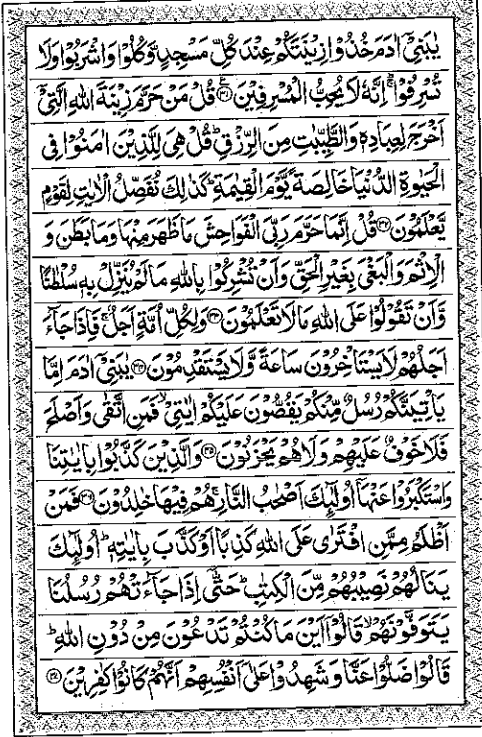 يٰبَنِيْۤ اٰدَمَ خُذُوْا زِيْنَتَكُمْ عِنْدَ كُلِّ مَسْجِدٍ وَّكُلُوْا وَاشْرَبُوْا وَلَا
تُسْرِفُوْا ۚ اِنَّهٗ لَا يُحِبُّ الْمُسْرِفِيْنَ ۝۳۱ قُلْ مَنْ حَرَّمَ زِيْنَةَ اللّٰهِ الَّتِيْۤ
اَخْرَجَ لِعِبَادِهٖ وَالطَّيِّبٰتِ مِنَ الرِّزْقِ ؕ قُلْ هِيَ لِلَّذِيْنَ اٰمَنُوْا فِي
الْحَيٰوةِ الدُّنْيَا خَالِصَةً يَّوْمَ الْقِيٰمَةِ ؕ كَذٰلِكَ نُفَصِّلُ الْاٰيٰتِ لِقَوْمٍ
يَّعْلَمُوْنَ ۝۳۲ قُلْ اِنَّمَا حَرَّمَ رَبِّيَ الْفَوَاحِشَ مَا ظَهَرَ مِنْهَا وَمَا بَطَنَ وَ
الْاِثْمَ وَالْبَغْيَ بِغَيْرِ الْحَقِّ وَاَنْ تُشْرِكُوْا بِاللّٰهِ مَا لَمْ يُنَزِّلْ بِهٖ سُلْطٰنًا
وَّاَنْ تَقُوْلُوْا عَلَى اللّٰهِ مَا لَا تَعْلَمُوْنَ ۝۳۳ وَلِكُلِّ اُمَّةٍ اَجَلٌ ۚ فَاِذَا جَآءَ
اَجَلُهُمْ لَا يَسْتَاْخِرُوْنَ سَاعَةً وَّلَا يَسْتَقْدِمُوْنَ ۝۳۴ يٰبَنِيْۤ اٰدَمَ اِمَّا
يَاْتِيَنَّكُمْ رُسُلٌ مِّنْكُمْ يَقُصُّوْنَ عَلَيْكُمْ اٰيٰتِيْ ۙ فَمَنِ اتَّقٰى وَاَصْلَحَ
فَلَا خَوْفٌ عَلَيْهِمْ وَلَا هُمْ يَحْزَنُوْنَ ۝۳۵ وَالَّذِيْنَ كَذَّبُوْا بِاٰيٰتِنَا
وَاسْتَكْبَرُوْا عَنْهَاۤ اُولٰٓئِكَ اَصْحٰبُ النَّارِ ۚ هُمْ فِيْهَا خٰلِدُوْنَ ۝۳۶ فَمَنْ
اَظْلَمُ مِمَّنِ افْتَرٰى عَلَى اللّٰهِ كَذِبًا اَوْ كَذَّبَ بِاٰيٰتِهٖ ؕ اُولٰٓئِكَ
يَنَالُهُمْ نَصِيْبُهُمْ مِّنَ الْكِتٰبِ ؕ حَتّٰۤى اِذَا جَآءَتْهُمْ رُسُلُنَا
يَتَوَفَّوْنَهُمْ ۙ قَالُوْۤا اَيْنَ مَا كُنْتُمْ تَدْعُوْنَ مِنْ دُوْنِ اللّٰهِ ؕ
قَالُوْا ضَلُّوْا عَنَّا وَشَهِدُوْا عَلٰۤى اَنْفُسِهِمْ اَنَّهُمْ كَانُوْا كٰفِرِيْنَ ۝۳۷